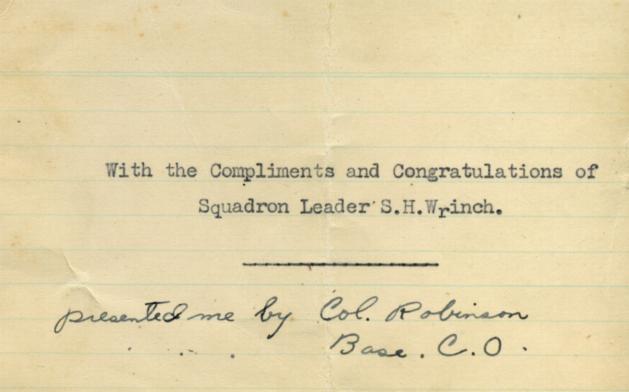 With the Compliments and Congratulations of
Squadron Leader S.H.Wrinch.
presented me by Col. Robinson
. . . Base. C.O.